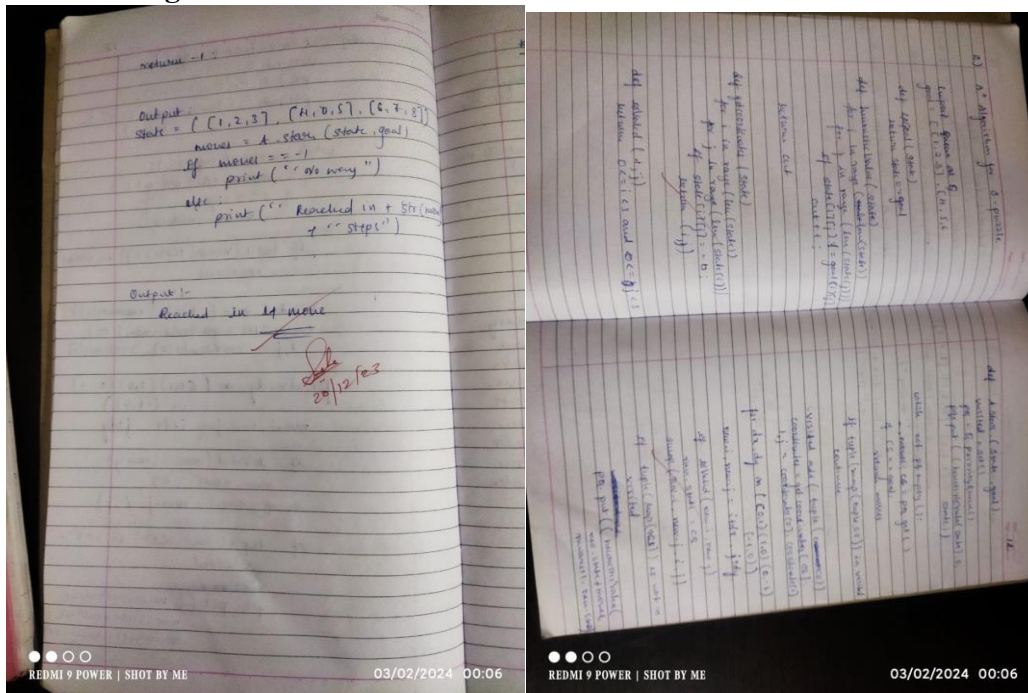 return -1;
Output:
State = ( [1,2,3], [4,0,5], [6,7,8]]
moves = A star (state, goal)
if moves == -1
print (" No way")
else:
print (" Reached in + str(
+ " steps")
Output :-
Reached in 14 move
20/12/23
REDMI 9 POWER | SHOT BY ME
03/02/2024 00:06
2) A* Algorithm for 8-puzzle
import queue as Q
goal = [ [1,2,3], [4,5,6
def isgoal (state)
return state = goal
def heuristicValue (state)
for i in range (len(state))
for j in range (len (state[i]))
if state[i][j] != goal[i][j]
cnt++;
return cnt
def getcoordinates (state)
for i in range (len(state))
for j in range (len(state[i]))
if state[i][j] == 0:
return (i,j)
def isValid (i,j)
return 0<=i<3 and 0<=j<3
12
def A star (state, goal)
visited = set()
pq = Q.PriorityQueue()
pq.put (( heuristicValue(state), 0,
state))
while not pq.empty():
_, moves, cs = pq.get()
if cs == goal
return moves
if tuple(map(tuple,cs)) in visited
continue
visited.add(
coordinates = getcoordinates (cs)
i,j = coordinates[0], coordinates[1]
for dx,dy in (0,1)(1,0)(0,-1)
(-1,0)
new_i, new_j = i+dx, j+dy
if isValid (new_i, new_j)
new_state = cs
swap (new_i, new_j, i, j)
if tuple (map(
) is not in
visited
pq.put (( heuristicValue(
REDMI 9 POWER | SHOT BY ME
03/02/2024 00:06